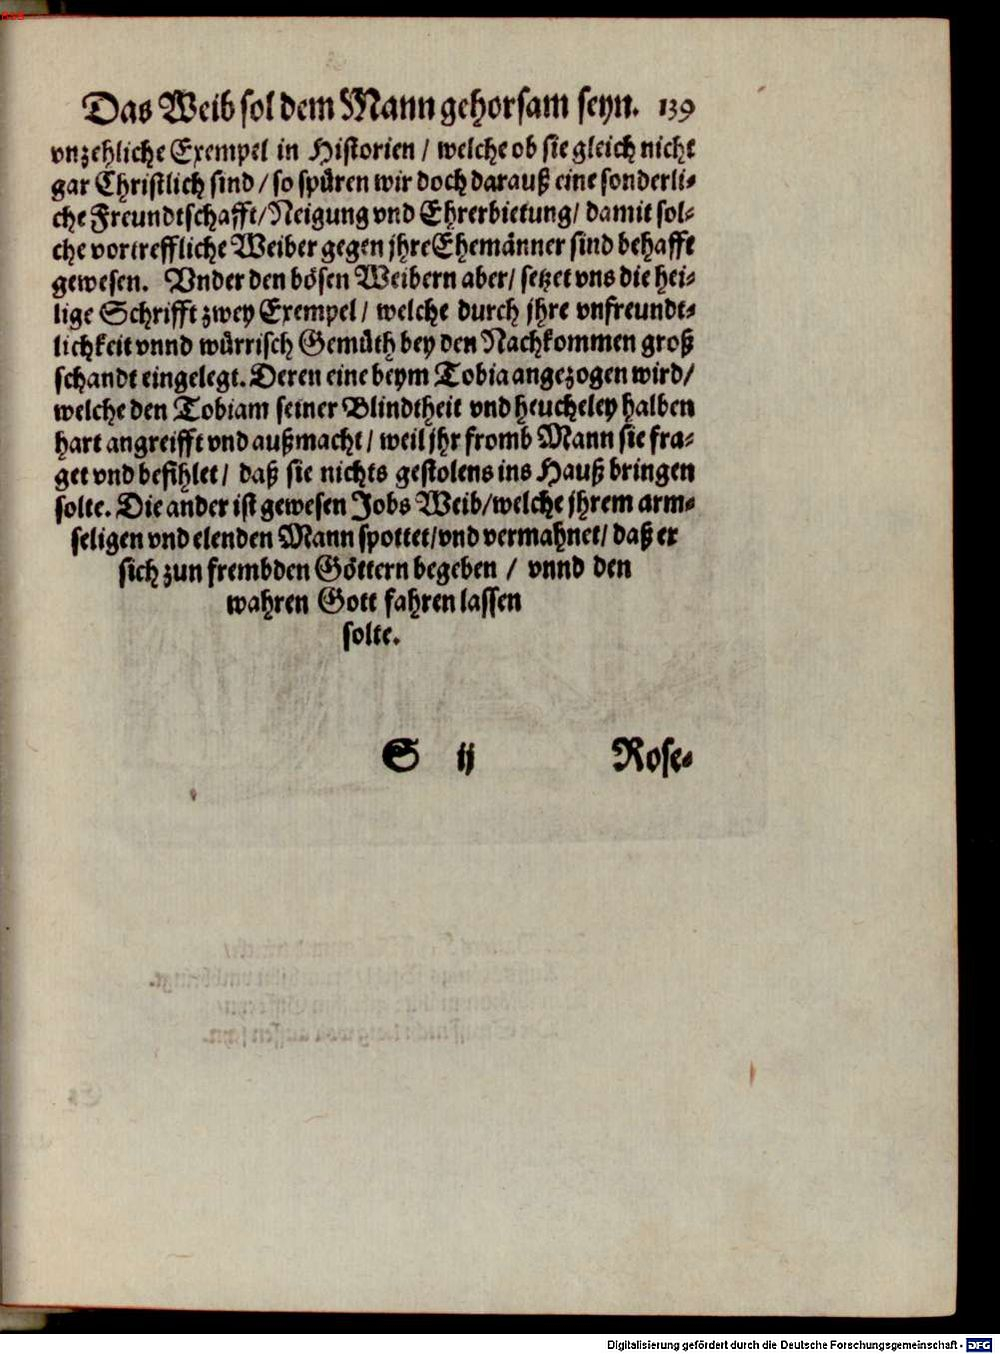 Das Weib sol dem Mann gehorsam seyn. 139
vnzehliche Exempel in Historien / welche ob sie gleich nicht
gar Christlich sind / so spüren wir doch darauß eine sonderli-
che Freundtschafft / Neigung vnd Ehrerbietung / damit sol-
che vortreffliche Weiber gegen jhre Ehemänner sind behafft
gewesen. Vnder den bösen Weibern aber / setzet vns die hei-
lige Schrifft zwey Exempel / welche durch jhre vnfreundt-
lichkeit vnnd würrisch Gemüth bey den Nachkommen groß
schandt eingelegt. Deren eine beym Tobia angezogen wird /
welche den Tobiam seiner Blindtheit vnd heucheley halben
hart angreifft vnd außmacht / weil jhr fromb Mann sie fra-
get vnd befihlet / daß sie nichts gestolens ins Hauß bringen
solte. Die ander ist gewesen Jobs Weib / welche jhrem arm-
seligen vnd elenden Mann spottet / vnd vermahnet / daß er
sich zun frembden Göttern begeben / vnnd den
wahren Gott fahren lassen
solte.
S ij Rose-
Digitalisierung gefördert durch die Deutsche Forschungsgemeinschaft - DFG